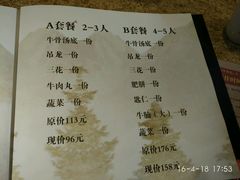 A套餐 2-3人
牛骨汤底 一份
吊龙 一份
三花 一份
牛肉丸 一份
蔬菜 一份
原价113元
现价96元
B套餐 4-5人
牛骨汤底 一份
吊龙 一份
三花 一份
肥胼 一份
匙仁 一份
牛肚（大）一份
蔬菜 一份
原价176元
现价158元
6-4-18 17:53